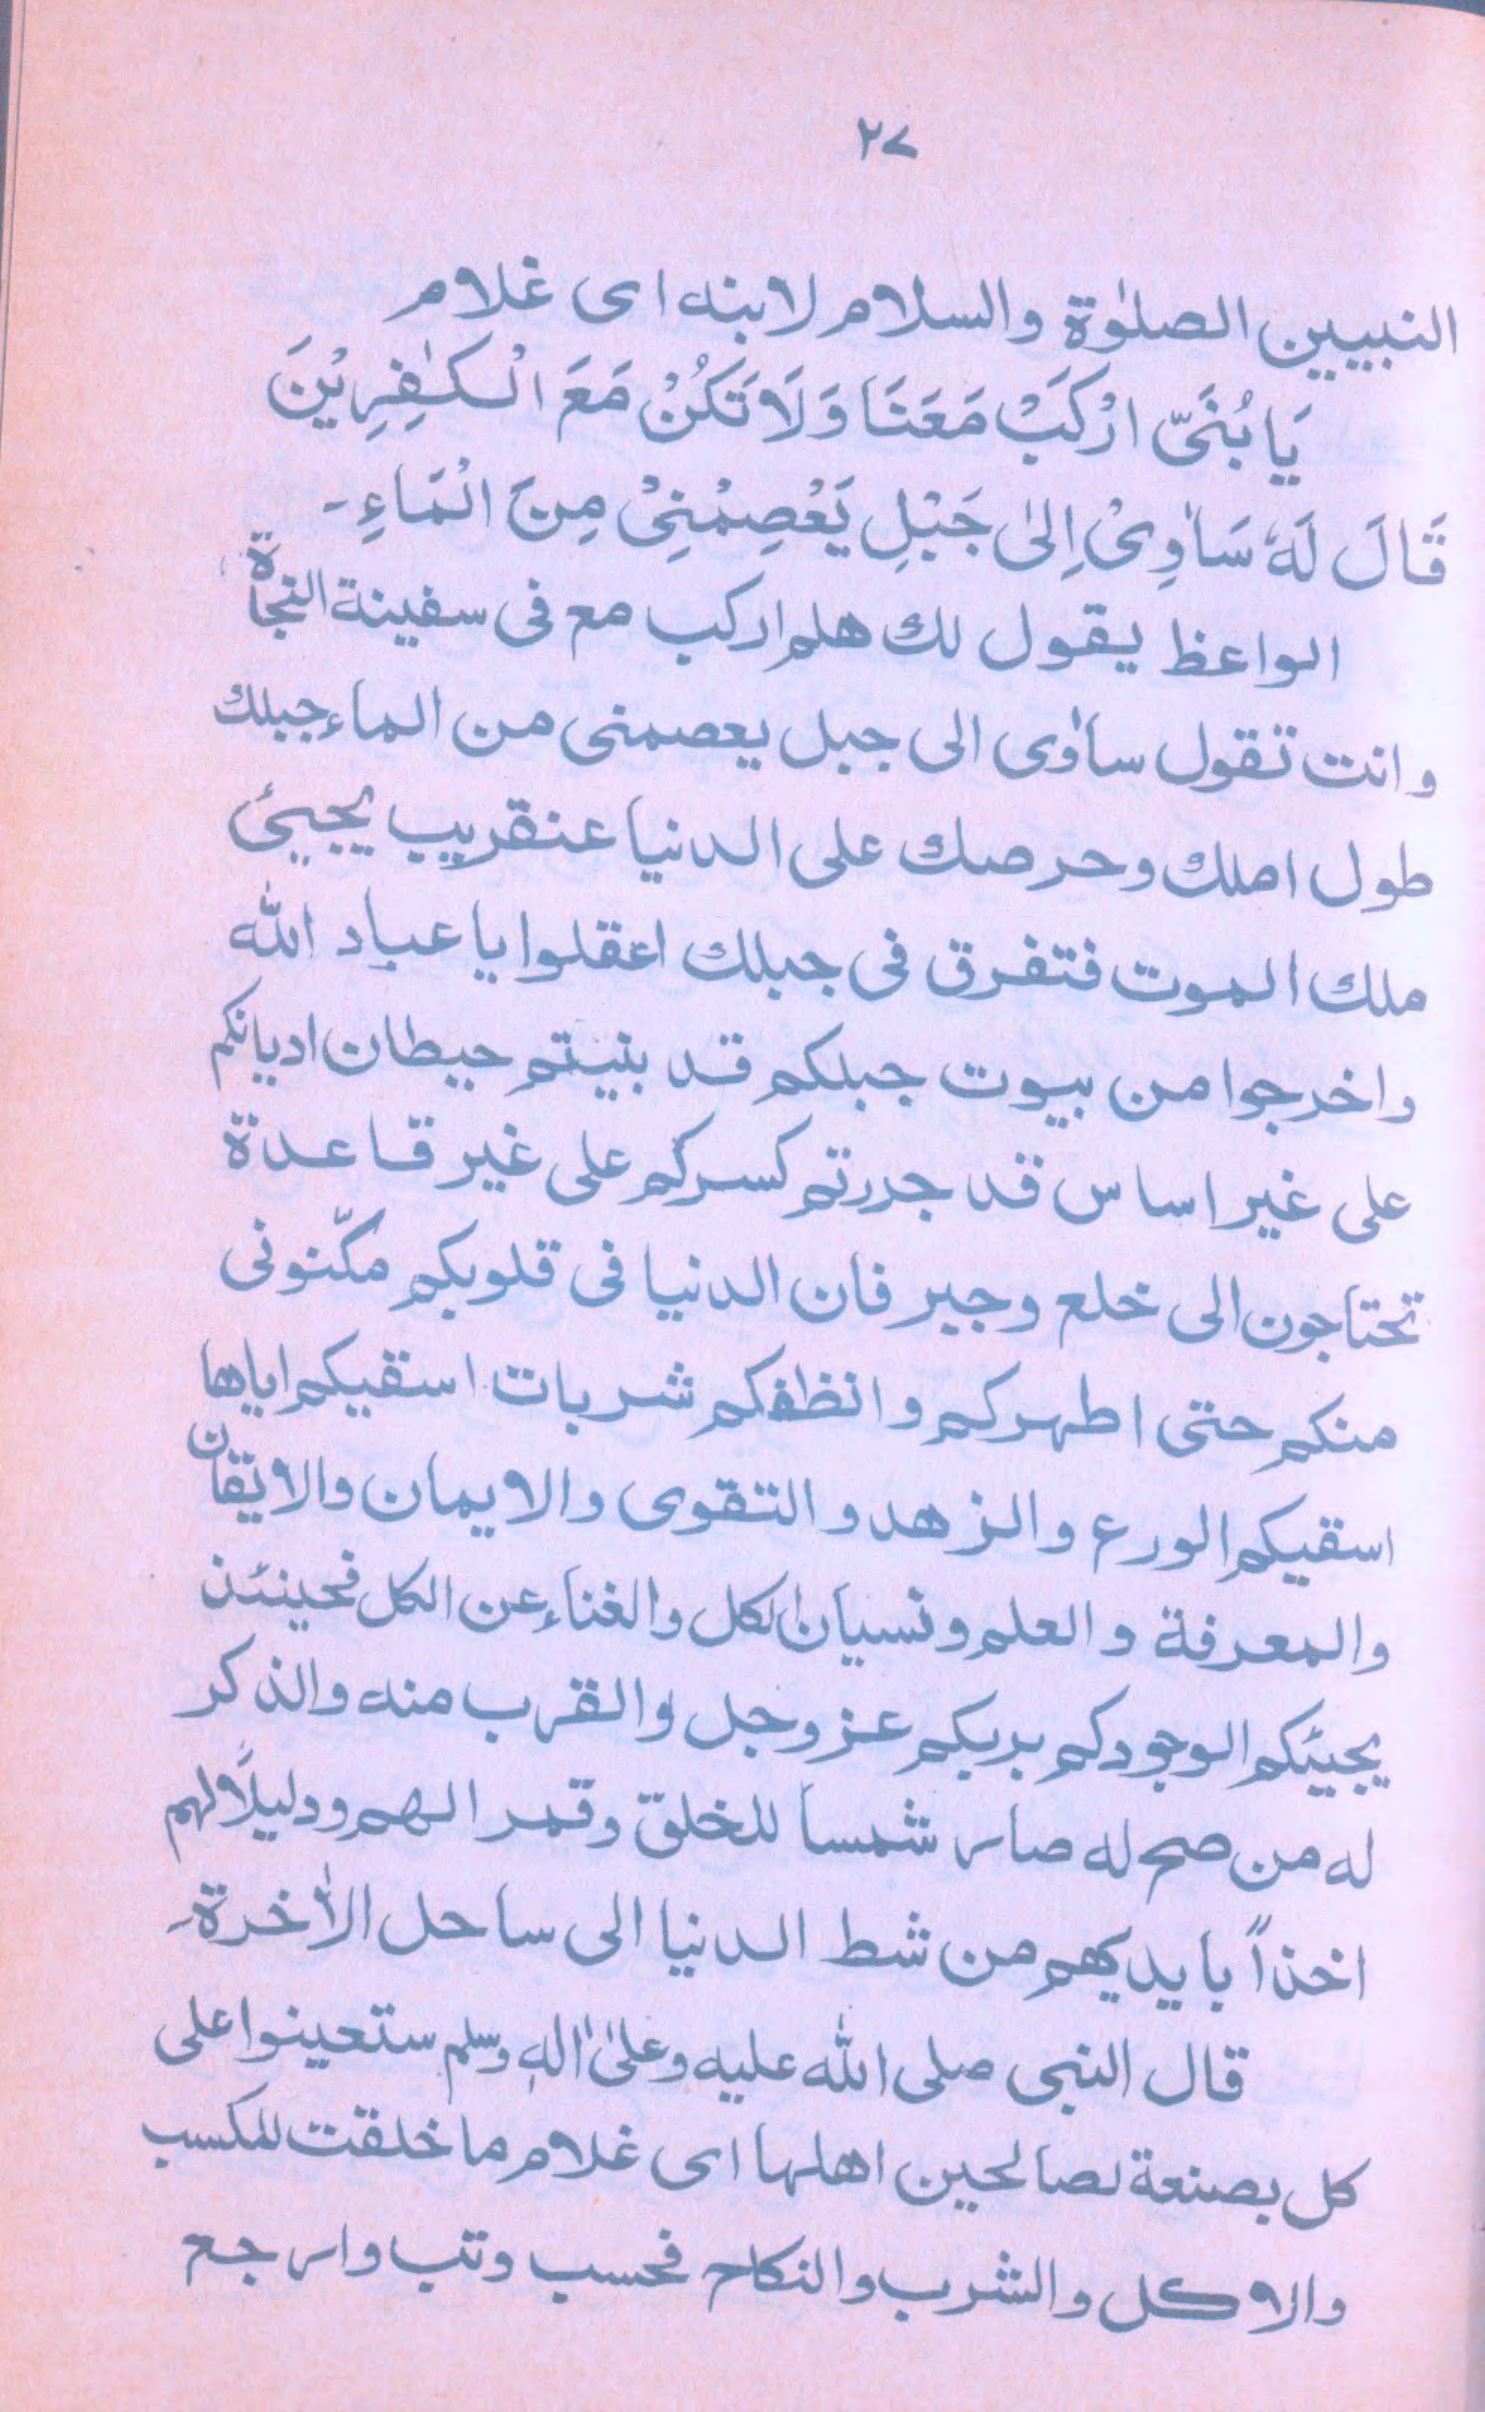 ٢٧
النبيين الصلوٰة والسلام لابنه اى غلام
يَا بُنَىَّ ارْكَبْ مَعَنَا وَلَا تَكُنْ مَعَ الْكٰفِرِيْنَ
قَالَ لَهٗ سَاٰوِىْ اِلىٰ جَبْلِ يَعْصِمْنِىْ مِنَ الْمَاءِ۔
الواعظ يقول لك هلم اركب مع فى سفينة النجاة
وانت تقول ساٰوى الى جبل يعصمنى من الماء جبلك
طول املك وحرصك على الدنيا عنقريب يجيئ
ملك الموت فتفرق فى جبلك اعقلوا يا عباد الله
واخرجوا من بيوت جبلكم قد بنيتم حيطان اديانكم
على غير اساس قد جدرتم كسركم على غير قاعدة
تحتاجون الى خلع وجبر فان الدنيا فى قلوبكم مكّنونى
منكم حتى اطهركم وانظفكم شربات اسقيكم اياها
اسقيكم الورع والزهد والتقوى والايمان والايقان
والمعرفة والعلم ونسيان الكل والغناء عن الكل فحينئذ
يجيئكم الوجودكم بربكم عز وجل والقرب منه والذكر
له من صح له صار شمسا للخلق وقمر الهم ودليلاً لهم
اخذاً بايديهم من شط الدنيا الى ساحل الاٰخرة۔
قال النبى صلى الله عليه وعلىٰ اٰله وسلم ستعينوا على
كل بصنعة لصالحين اهلها اى غلام ما خلقت للمكسب
والاكل والشرب والنكاح فحسب وتب وارجع